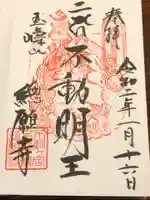 奉拝
令和二年一月十六日
不動明王
玉嶹山
總願寺